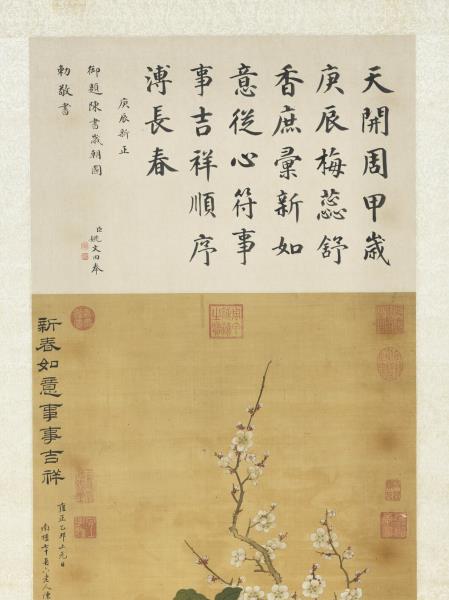 天開周甲歲
庚辰梅蕊舒
香庶彙新如
意從心符事
事吉祥順序
溥長春
庚辰新正
御題陳書歲朝圖
勅敬書
臣姚文田奉
新春如意事事吉祥
雍正乙卯上元日
南樓七十六老人陳